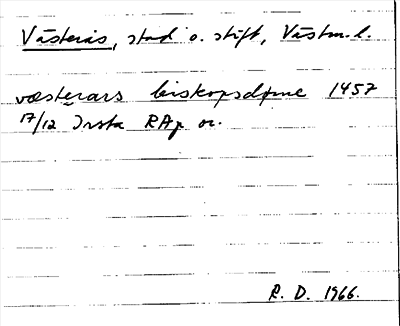 Västerås, stad o. stift, Västm. l.
væsterars biskopsdøme 1457
17/12 Irsta RAp or.
R. D. 1966.